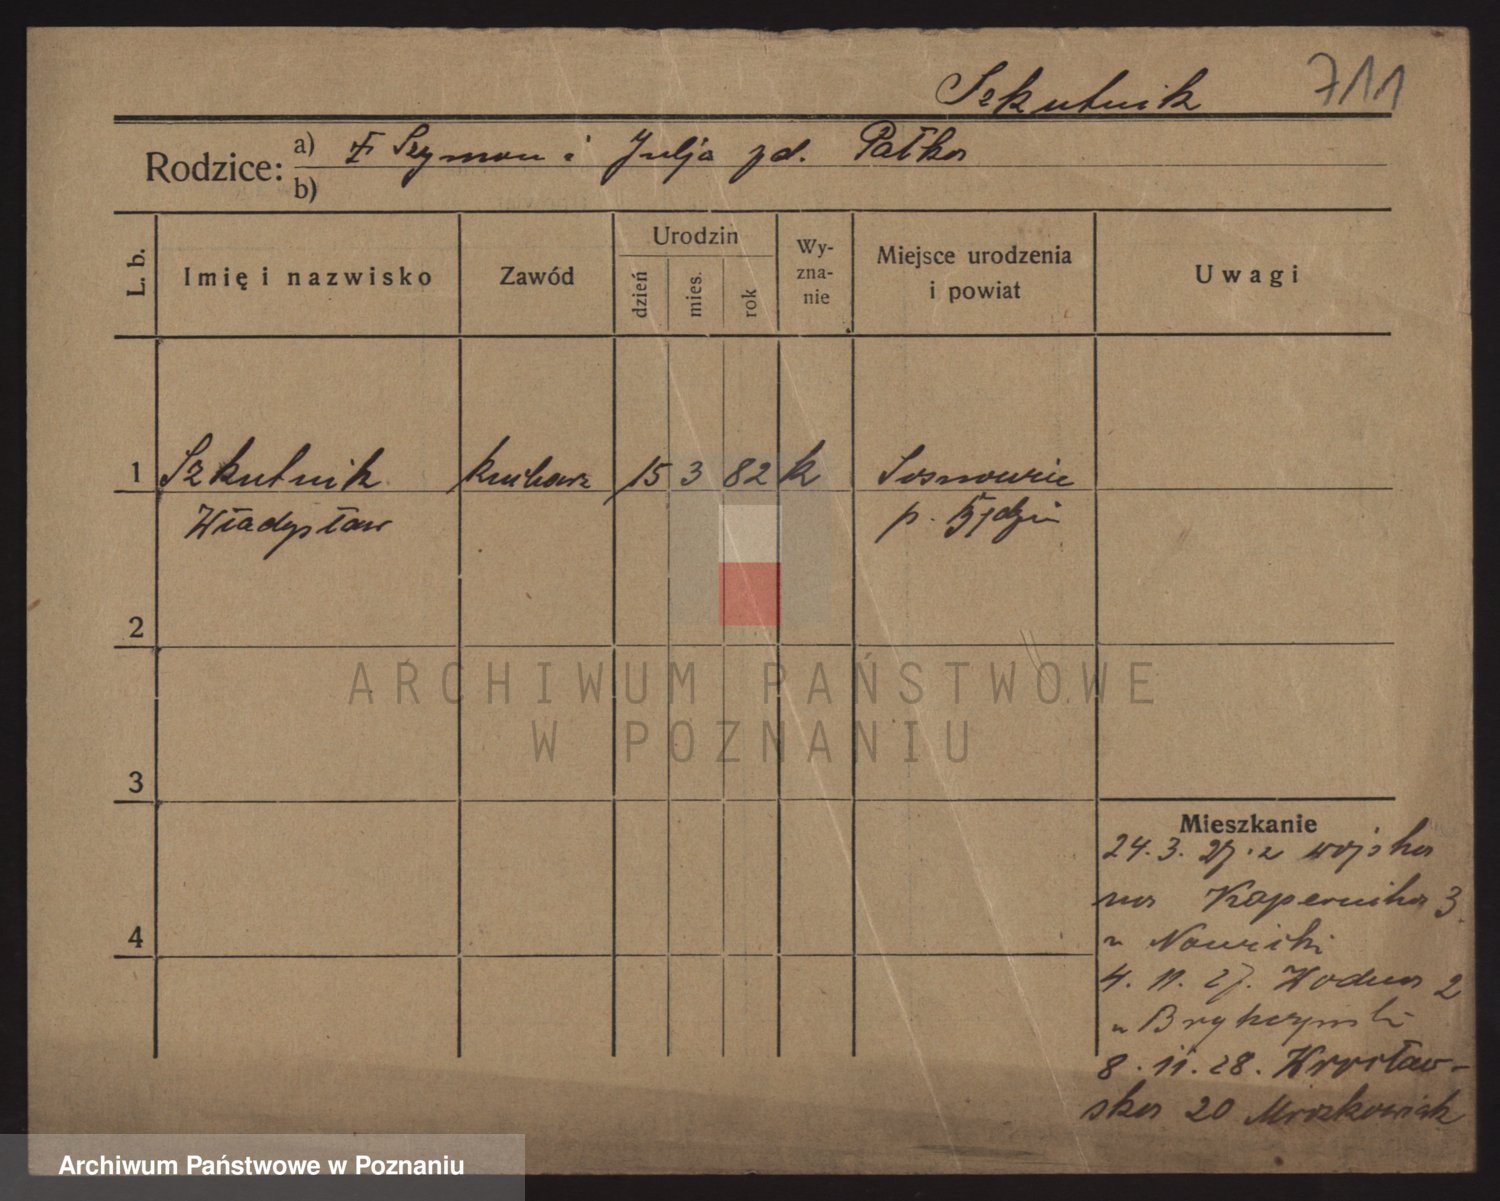 Szkutnik 711
Rodzice: a) Szymon i Julja zd. Pałka
b)
L. b. Imię i nazwisko Zawód Urodzin dzień mies. rok Wy-zna-nie Miejsce urodzenia i powiat Uwagi
1 Szkutnik kucharz 15 3 82 k Sosnowice
Władysław p. Będzin
2
ARCHIWUM PAŃSTWOWE
W POZNANIU
3
Mieszkanie
24. 3. 27. z wojska
na Kopernika 3
4
u Nowicki
4. 11. 27. Wodna 2
u Brykczyński
8. 11. 28. Wrocław-
ska 20 Mrozkowiak
Archiwum Państwowe w Poznaniu